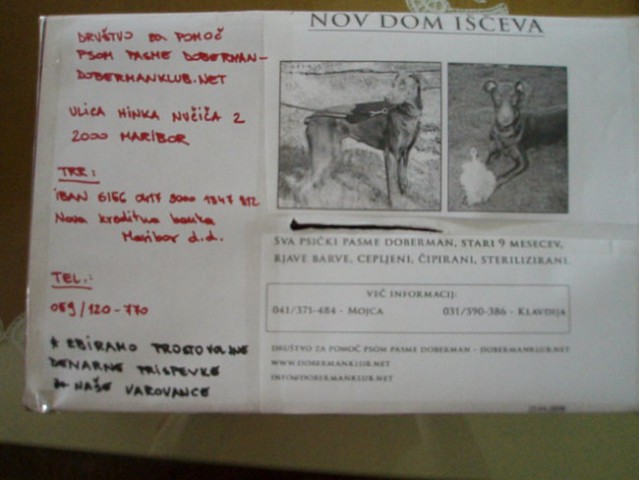 DRUŠTVO ZA POMOČ
PSOM PASME DOBERMAN-
DOBERMANKLUB.NET
ULICA HINKA NUČIČA 2
2000 MARIBOR
TRR:
IBAN SI56 0417 3000 1347 812
Nova kreditna banka
Maribor d.d.
TEL.:
059/120-770
* ZBIRAMO PROSTOVOLJNE
DENARNE PRISPEVKE
ZA NAŠE VAROVANCE
NOV DOM IŠČEVA
SVA PSIČKI PASME DOBERMAN, STARI 9 MESECEV,
RJAVE BARVE, CEPLJENI, ČIPIRANI, STERILIZIRANI.
VEČ INFORMACIJ:
041/371-484 - MOJCA 031/590-386 - KLAVDIJA
DRUŠTVO ZA POMOČ PSOM PASME DOBERMAN - DOBERMANKLUB.NET
WWW.DOBERMANKLUB.NET
INFO@DOBERMANKLUB.NET